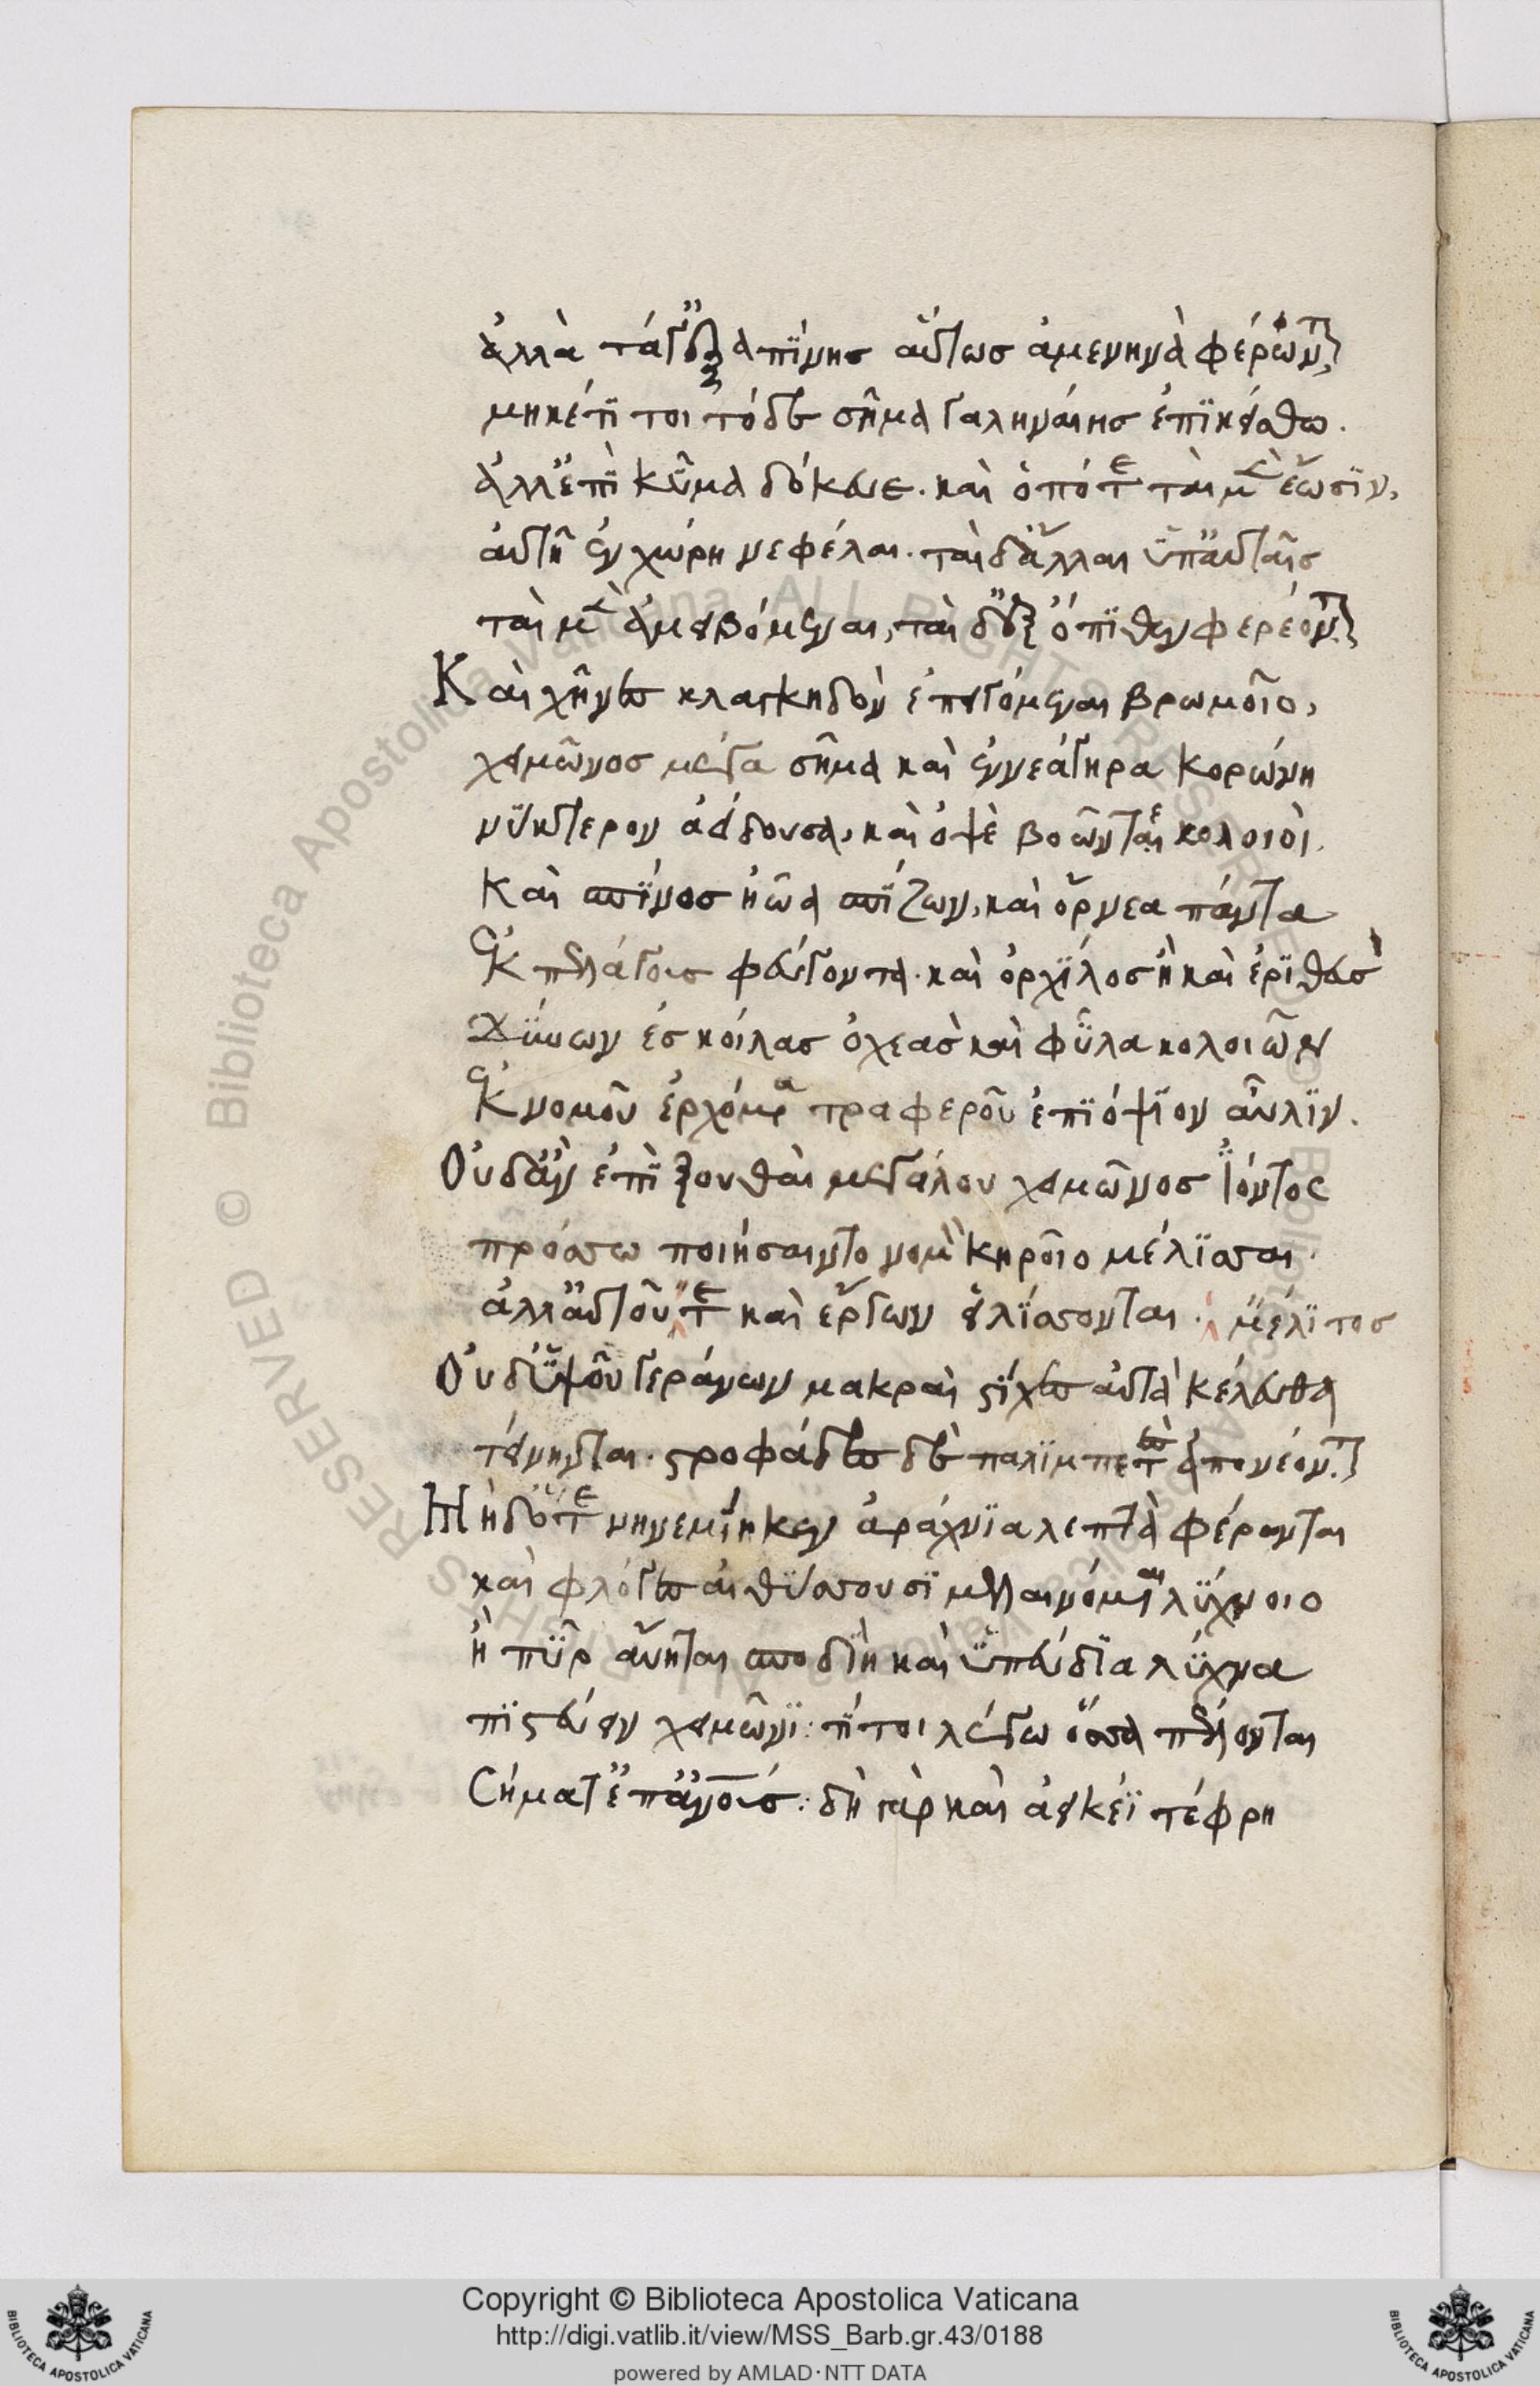 ἀλλὰ τάγ' ἐξαπίνης αὔτως ἀμενηνὰ φέρωνται
μηκέτι τοι τόδε σῆμα γαληναίης ἐπικείσθω.
ἀλλ' ἐπὶ κῦμα δόκευε. καὶ ὁπότε ταὶ μὲν ἔωσιν,
αὐτῇ ἐν χώρῃ νεφέλαι. ταὶ δ' ἄλλαι ὑπ' αὐταῖς
ταὶ μὲν ἀμειβόμεναι, ταὶ δ' ἐξόπιθεν φερέονται.
Καὶ χῆνες κλαγγηδὸν ἐπειγόμεναι βρωμοῖο,
χειμῶνος μέγα σῆμα καὶ ἐννεάγηρα κορώνη
νύκτερον ἀείδουσα, καὶ ὀψὲ βοῶντε κολοιοὶ.
καὶ σπίνος ἠῶα σπίζων, καὶ ὄρνεα πάντα
ἐκ πελάγους φεύγοντα. καὶ ὀρχίλος ἢ καὶ ἐριθεὺς
δύνων ἐς κοίλας ὀχεὰς καὶ φῦλα κολοιῶν
ἐκ νομοῦ ἐρχόμενα τραφεροῦ ἐπὶ ὄψιον αὖλιν.
Οὐδ' ἂν ἐπὶ ξουθαὶ μεγάλου χειμῶνος ἰόντος
πρόσσω ποιήσαιντο νομὸν κηροῖο μέλισσαι.
ἀλλ' αὐτοῦ τε καὶ ἔργων εἱλίσσονται. μέλιτος
Οὐδ' ὑψοῦ γεράνων μακραὶ στίχες αὐτὰ κέλευθα
τείνηνται. στροφάδες δὲ παλιμπετὲς ἀπονέονται
Μηδ' ὅτε νηνεμίη κεν ἀράχνια λεπτὰ φέρονται
καὶ φλόγες αἰθύσσουσι μελαινόμεναι λύχνοιο
ἢ πῦρ αὔηται σποδιὴ καὶ ὑπεύδια λύχνα
πιστεύειν χειμῶνι: τί τοι λέγω ὅσσα πέλονται
Σήματ' ἐπ' ἀνθρώπους: δὴ γὰρ καὶ ἀεικέϊ τέφρῃ
Copyright © Biblioteca Apostolica Vaticana
http://digi.vatlib.it/view/MSS_Barb.gr.43/0188
powered by AMLAD·NTT DATA